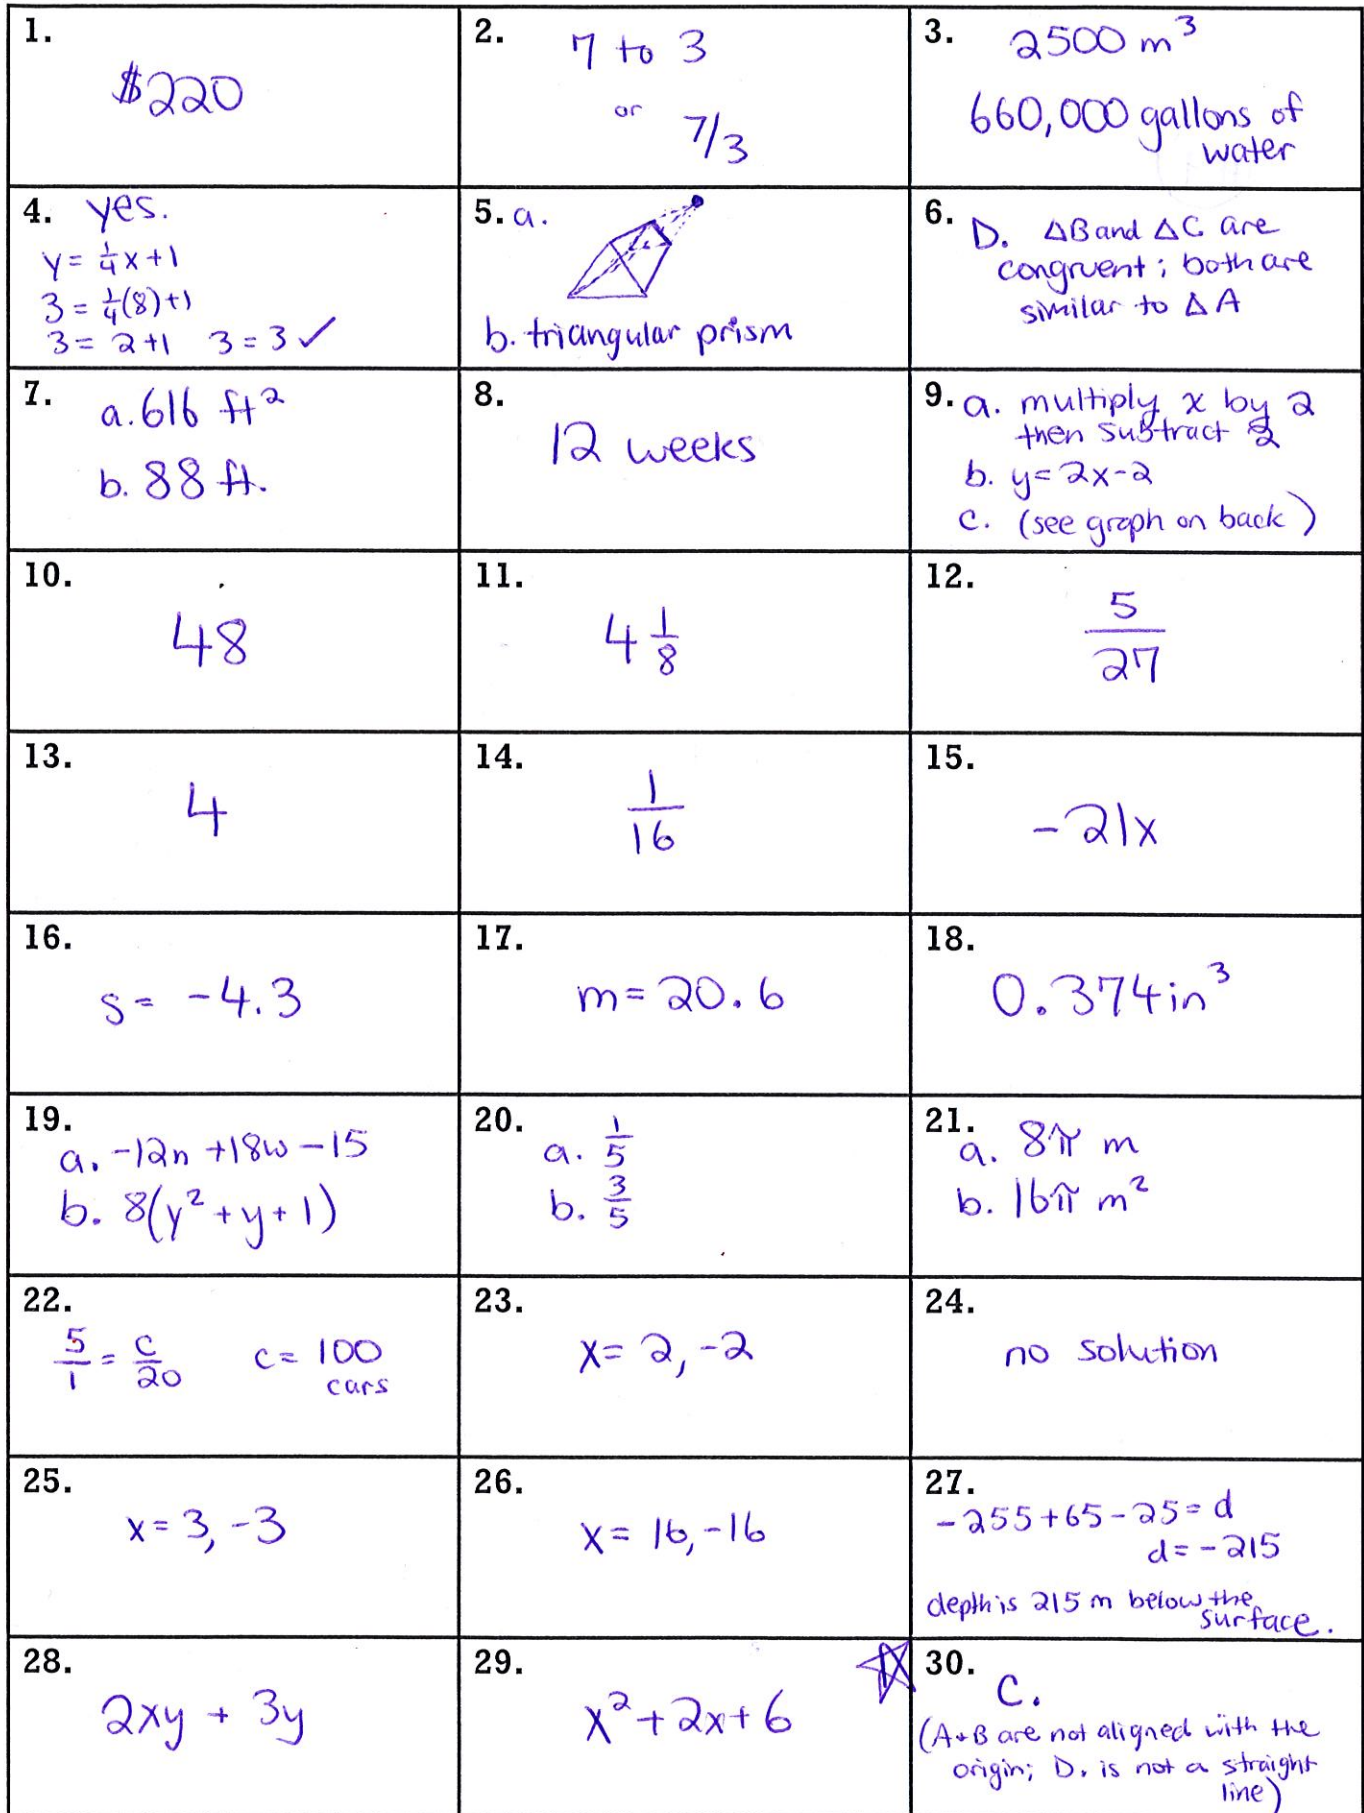 1.
$220
2.
7 to 3
or
7/3
3.
2500 m³
660,000 gallons of
water
4. yes.
y = 1/4 x + 1
3 = 1/4(8) + 1
3 = 2 + 1 3 = 3 ✓
5. a.
b. triangular prism
6.
D. △B and △C are
congruent; both are
similar to △A
7.
a. 616 ft²
b. 88 ft.
8.
12 weeks
9. a. multiply x by 2
then subtract 2
b. y = 2x - 2
c. (see graph on back)
10.
48
11.
4 1/8
12.
5/27
13.
4
14.
1/16
15.
-21x
16.
s = -4.3
17.
m = 20.6
18.
0.374 in³
19.
a. -12n + 18w - 15
b. 8(y² + y + 1)
20.
a. 1/5
b. 3/5
21.
a. 8π m
b. 16π m²
22.
5/1 = c/20 c = 100
cars
23.
x = 2, -2
24.
no solution
25.
x = 3, -3
26.
x = 16, -16
27.
-255 + 65 - 25 = d
d = -215
depth is 215 m below the
surface.
28.
2xy + 3y
29.
x² + 2x + 6
30.
C.
(A + B are not aligned with the
origin; D. is not a straight
line)